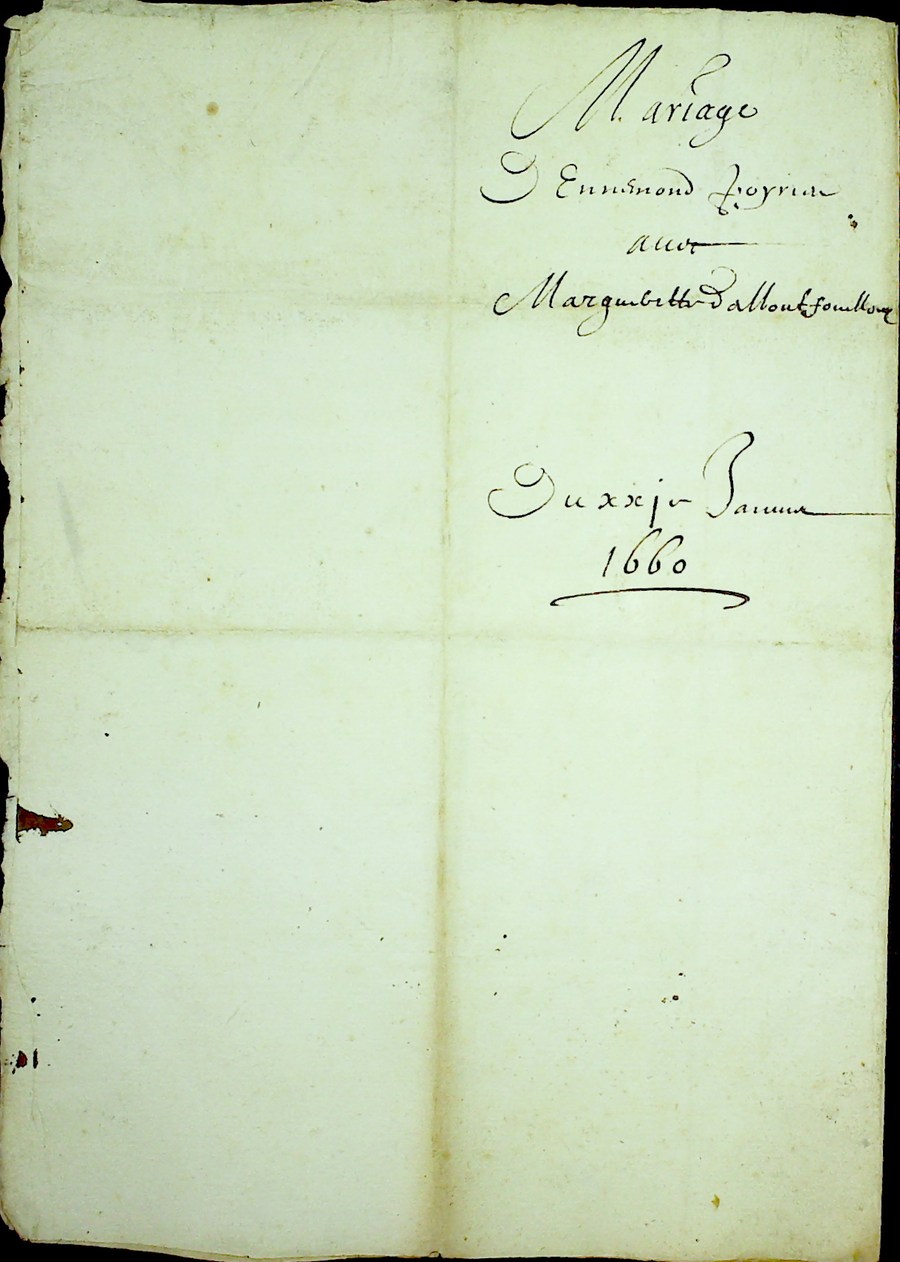 Mariage
D Ennemond Poyrier
avec
Margueritte Dallout
Du xxje Januier
1660